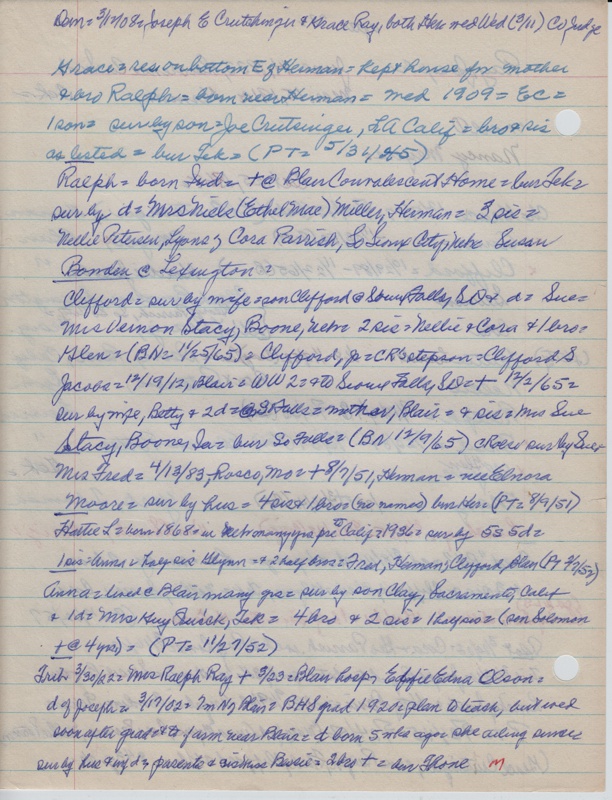 Dem = 3/12/08 = Joseph E Crutsinger & Grace Ray, both Her med Wed (3/11) Co Judge
Grace = res on bottom E of Herman = kept house for mother
& bro Ralph = born near Herman = med 1909 = EC =
1 son = sur by son = Joe Crutsinger, LA Calif = bro & sis
as listed = bur Tek = (PT = 5/31/45)
Ralph = born Ind = + @ Blair Convalescent Home = bur Tek =
sur by d = Mrs Niels (Ethel Mae) Miller, Herman = 3 sis =
Nellie Petersen, Lyons, Cora Parrish, So Sioux City, Nebr Susan
Bowden @ Lexington =
Clifford = sur by wife = son Clifford @ Sioux Falls, SD & d = Sue =
Mrs Vernon Stacy, Boone, = 2 sis = Nellie & Cora & 1 bro =
Glen = (BN = 11/25/65) = Clifford, jr = CR's stepson = Clifford S
Jacobs = 12/19/12, Blair = WW 2 = to Sioux Falls, SD = + 12/2/65 =
sur by wife, Betty & 2 d = @ S Falls = mother, Blair = & sis = Mrs Sue
Stacy, Boone, Ia = bur So Falls = (BN 12/9/65) sur by Sue
Mrs Fred = 4/13/83, Rosco, Mo = + 8/7/51, Herman = nee Elnora
Moore = sur by hus = 4 sis & 1 bro = (no names) bur Her = (PT = 8/9/51)
Hattie L = born 1868 = in Nebr many yrs pre to Calif = 1936 = sur by 5s 5d =
1 sis = Anna & half sis = & 2 half bros = Fred, Herman; Clifford, Blair (PT 2/7/52)
Anna = lived @ Blair many yrs = sur by son Clay, Sacramento, Calif
& 1 d = Mrs Guy Quick, Tek = 4 bro & 2 sis = 1 half sis = (son Solomon
+ @ 4 yrs) = (PT = 11/27/52)
Trib = 3/30/22 = Mrs Ralph Ray + 3/23 = Blair hosp = Effie Edna Olson =
d of Joseph = 3/17/02 = 7m N of Blair = BHS grad 1920 = plan to teach, but wed
soon after grad & to farm near Blair = d born 5 mths ago = she ailing since
sur by hus & inf d, parents & sis Bessie = 2 bro + = bur Fhone M